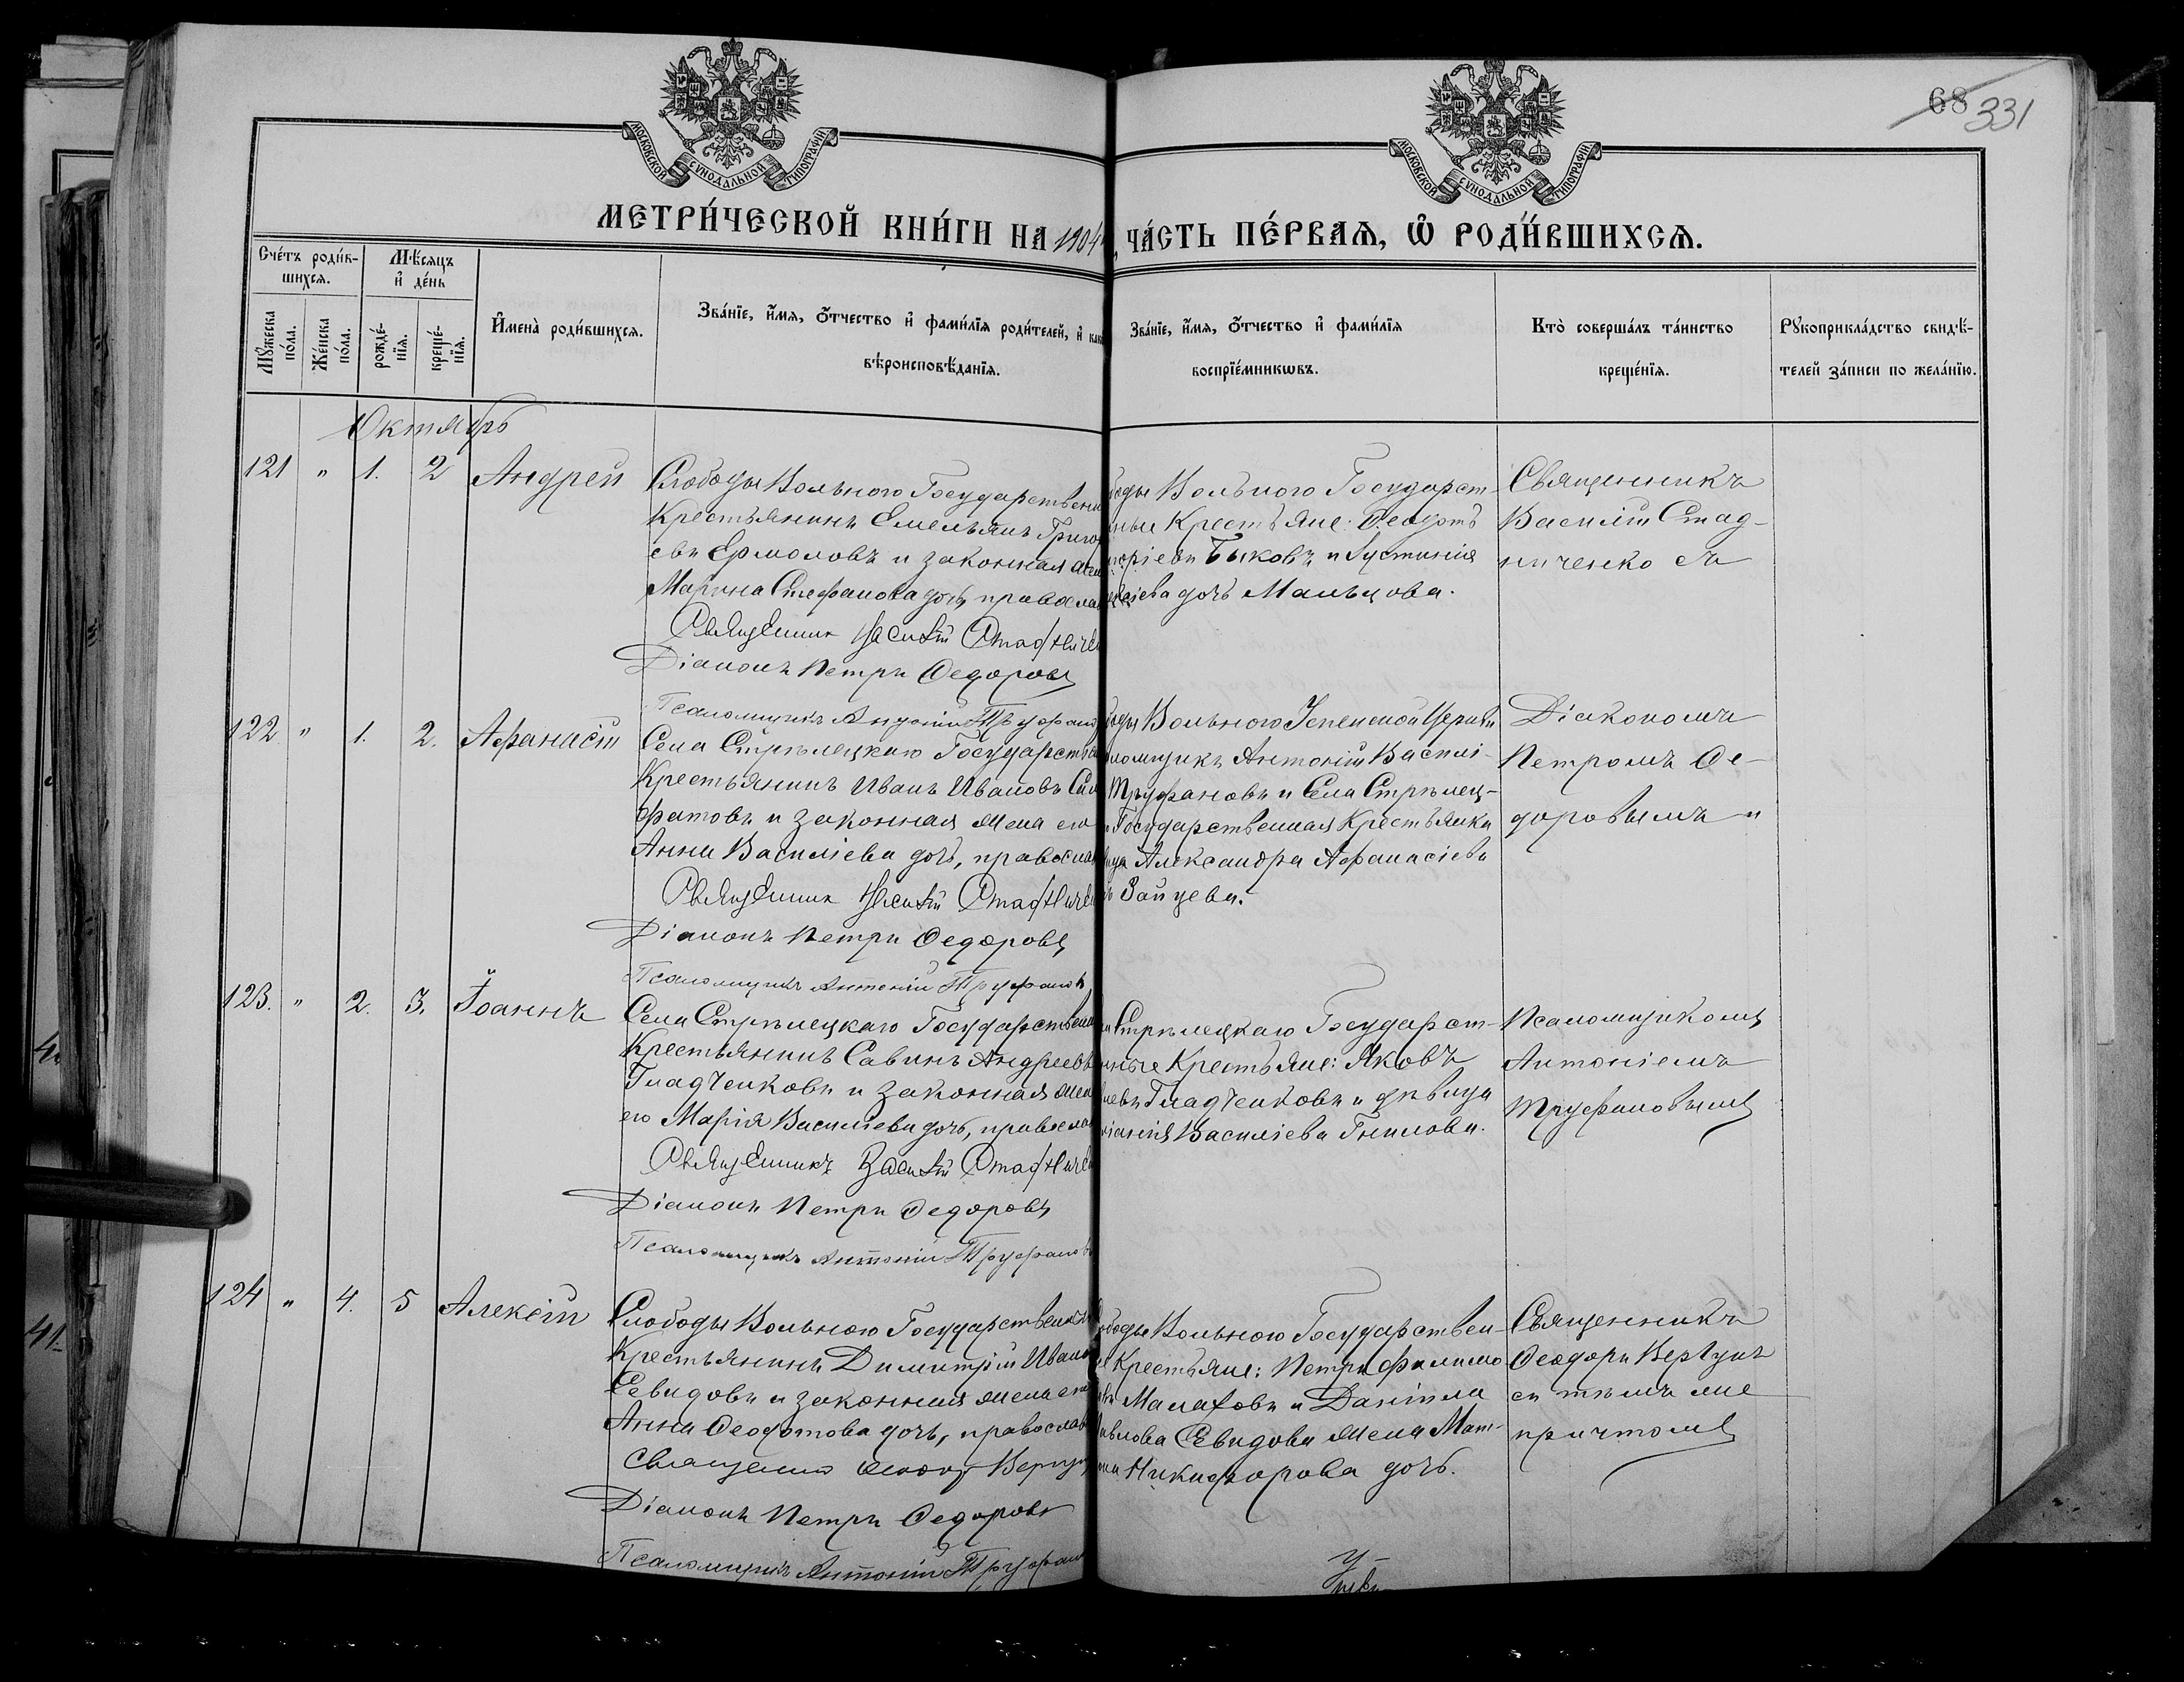 68 331
МОСКОВСКОЙ СѴНОДАЛЬНОЙ ТИПОГРАФІИ
МОСКОВСКОЙ СѴНОДАЛЬНОЙ ТИПОГРАФІИ
МЕТРИ́ЧЕСКОЙ КНИ́ГИ НА 1904 ЧА́СТЬ ПЕ́РВАЯ, Ѽ РОДИ́ВШИХСЯ.
Сче́тъ роди́в-
шихся.
Мꙋ́жеска по́ла.
Же́нска по́ла.
Мѣ́сяцъ и҆ де́нь
рожде́-нїя.
креще́-нїя.
И҆мена̀ роди́вшихся.
Зва́нїе, и҆́мя, ѻ҆́тчество и҆ фами́лїя роди́телей, и҆ как
вѣроисповѣ́данїя.
Зва́нїе, и҆́мя, ѻ҆́тчество и҆ фами́лїя
воспрїе́мникѡвъ.
Кто̀ соверша́лъ та́инство
креще́нїя.
Рꙋкоприкла́дство свидѣ́-
телей за́писи по жела́нїю.
Октябрь
121 " 1. 2 Андрей
Слободы Вольного Государствен
Крестьянинъ Емельянъ Григор
евъ Ермоловъ и законная жен
Марина Стефанова дочь, православ
Священник Василій Стадниче
Діаконъ Петръ Федоровъ
Псаломщикъ Антоній Труфано
боды Вольного Государст-
нные Крестьяне: Феодотъ
горіевъ Быковъ и Іустинія
аіева дочь Мальцова.
Священникъ
Василій Стад-
ниченко съ
122 " 1. 2. Афанасій
Села Стрѣлецкаго Государстве
Крестьянинъ Иванъ Ивановъ Сил
фатовъ и законная жена его
Анна Василіева дочь, православ
Священник Василій Стадниче
Діаконъ Петръ Федоровъ
Псаломщикъ Антоній Труфанов
боды Вольного Успенской Церкви
ломщикъ Антоній Василі-
Труфановъ и Села Стрѣлец-
Государственная Крестьянка
вица Александра Афанасіева
Зайцева.
Діакономъ
Петромъ Фе-
доровымъ и
123. " 2. 3. Іоаннъ
Села Стрѣлецкаго Государствен
Крестьянинъ Савинъ Андреевъ
Гладченковъ и законная жен
его Марія Василіева дочь, православ
Священникъ Василій Стадниче
Діаконъ Петръ Федоровъ
Псаломщикъ Антоній Труфановъ
Стрѣлецкаго Государст-
нные Крестьяне: Яковъ
евъ Гладченковъ и дѣвица
Василіева Гнилова.
Псаломщикомъ
Антоніемъ
Труфановымъ
124 " 4. 5 Алексій
Слободы Вольного Государственн
Крестьянинъ Димитрій Ивано
Севидовъ и законная жена его
Анна Феодотова дочь, православ
Священник Феодор Вергун
Діаконъ Петръ Федоровъ
Псаломщикъ Антоній Труфано
ободы Вольного Государствен-
е Крестьяне: Петръ Филимо
въ Малаховъ и Даніила
авлова Севидова жена Мат-
на Никифорова дочь.
Священникъ
Феодоръ Вергунъ
съ тѣмъ же
причтомъ